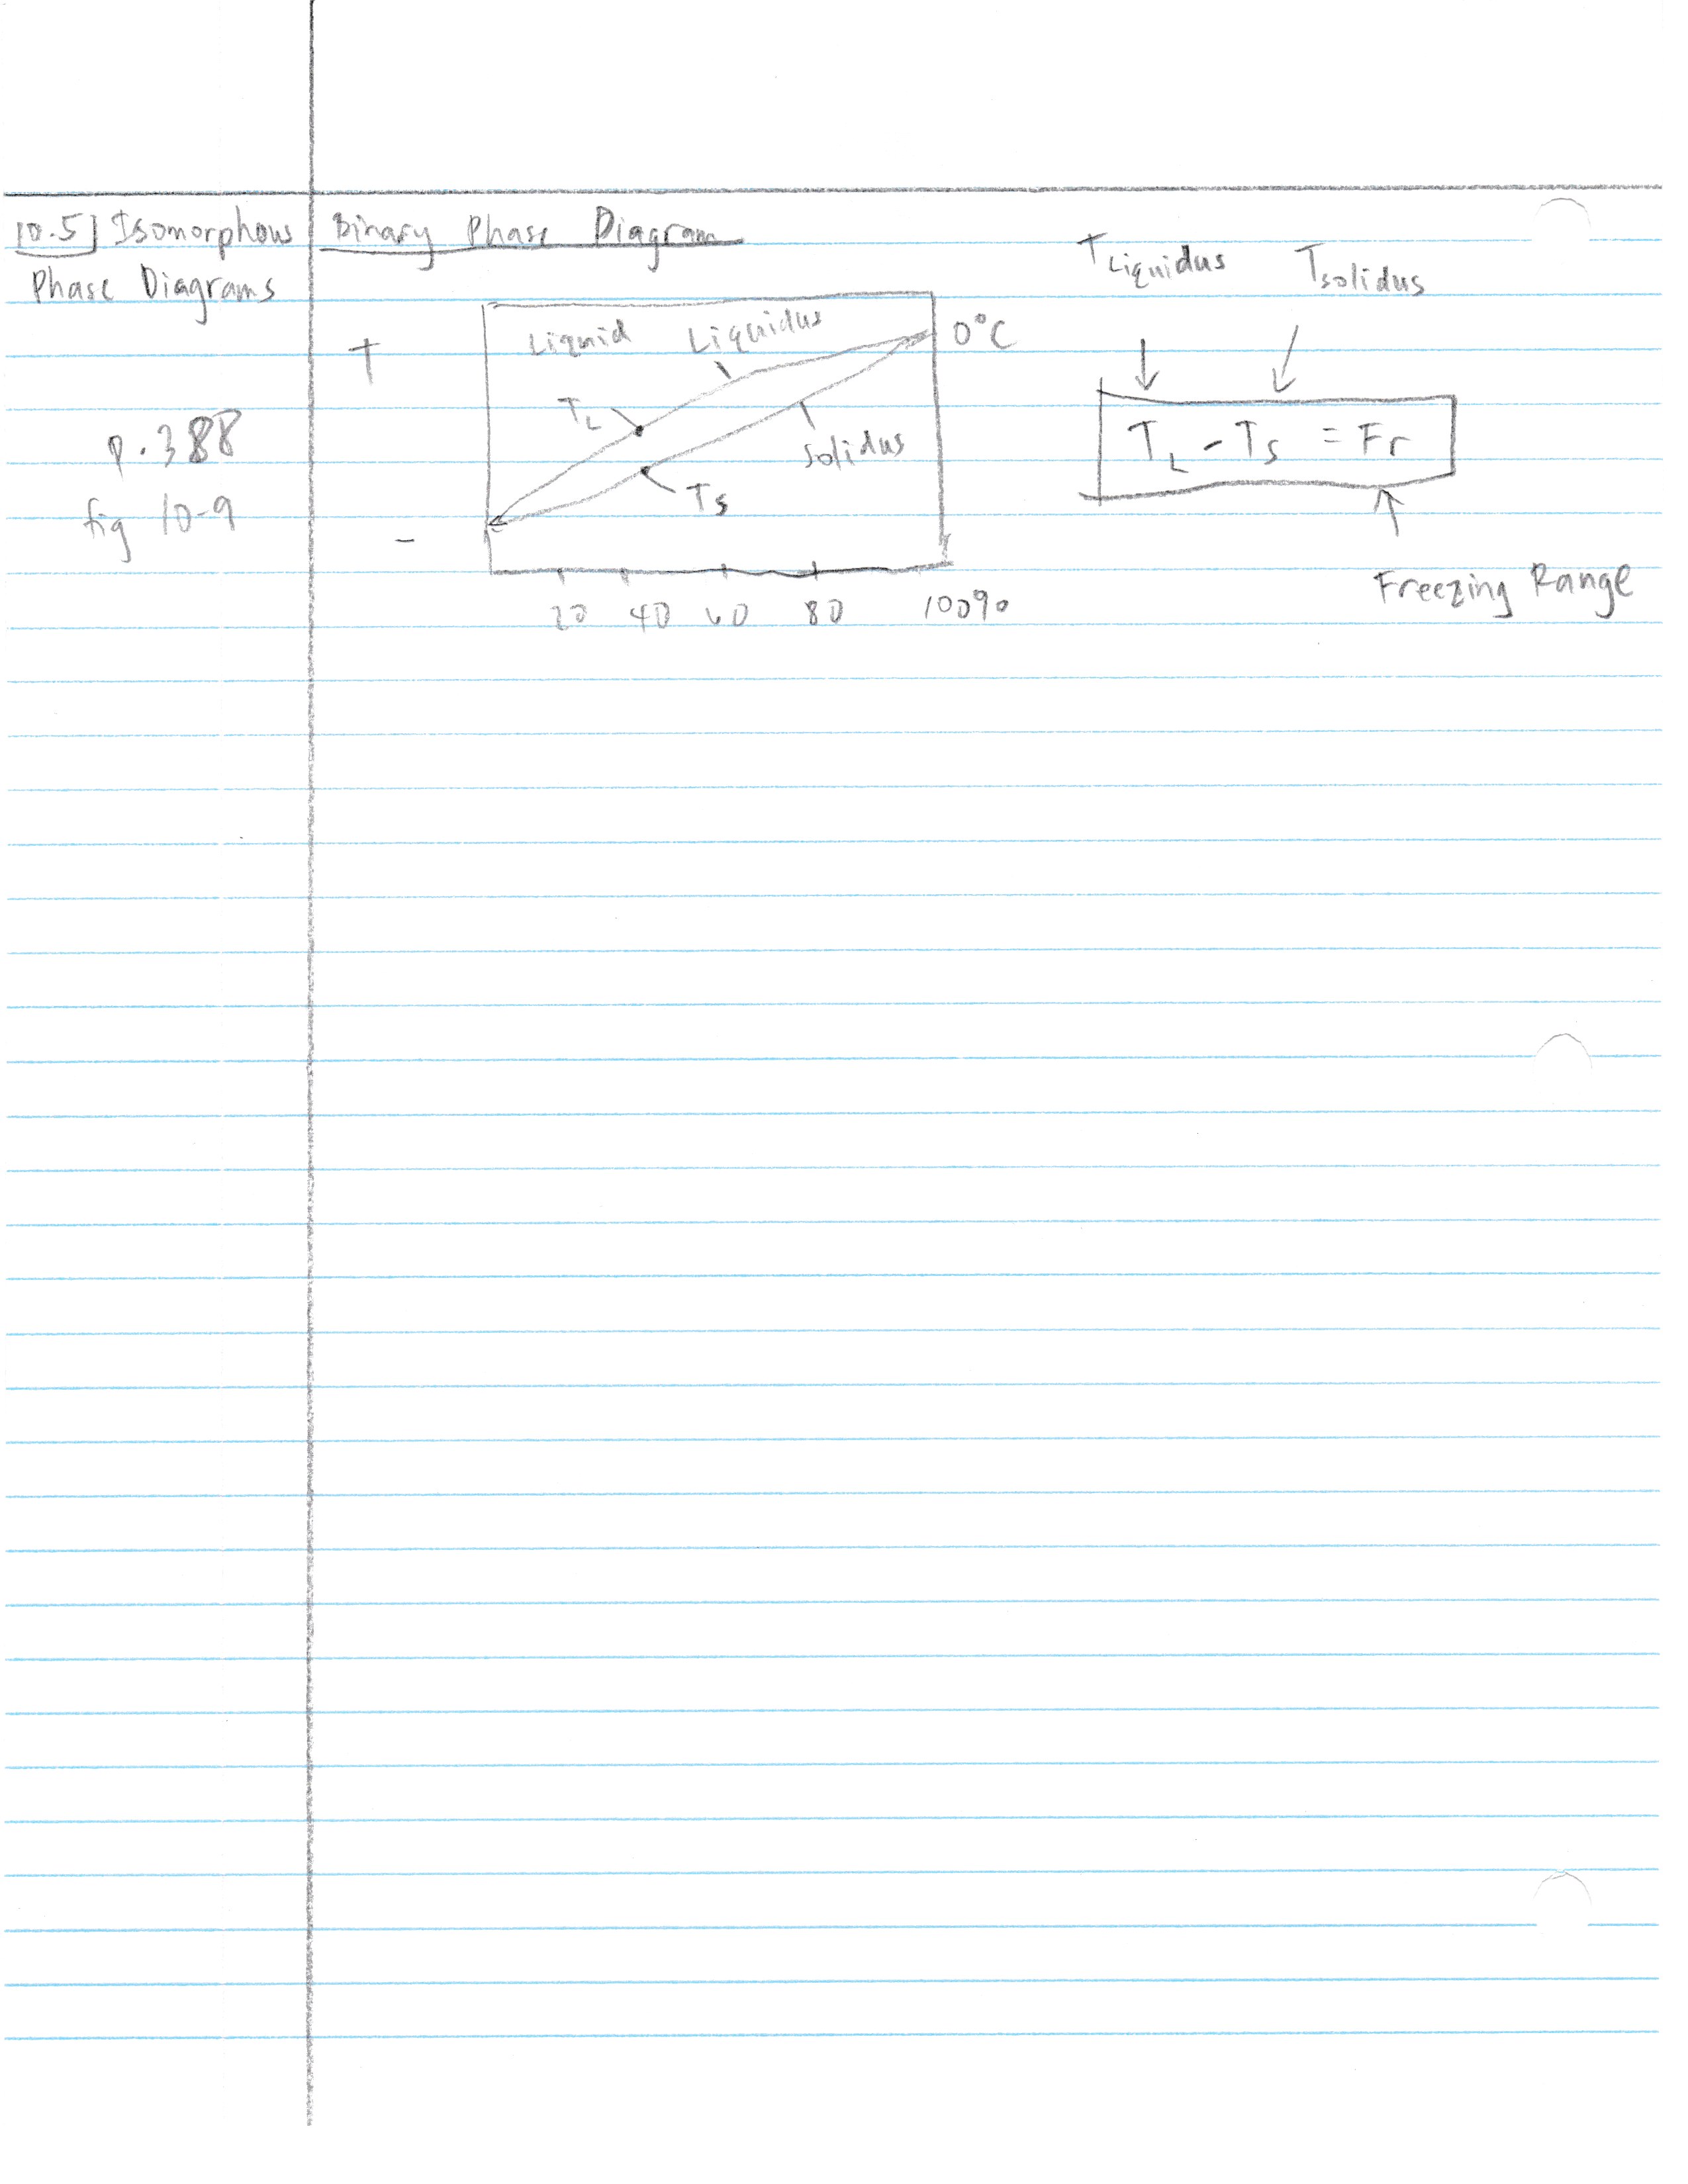 10.5] Isomorphous
Phase Diagrams
p. 388
fig 10-9
Binary Phase Diagram
T
Liquid Liquidus
0°C
TL
Solidus
Ts
-
20 40 60 80 100%
TLiquidus Tsolidus
TL - Ts = Fr
Freezing Range